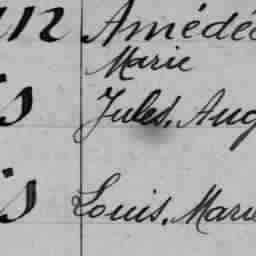 Amédé
Marie
s Jules, Aug
is Louis, Marie